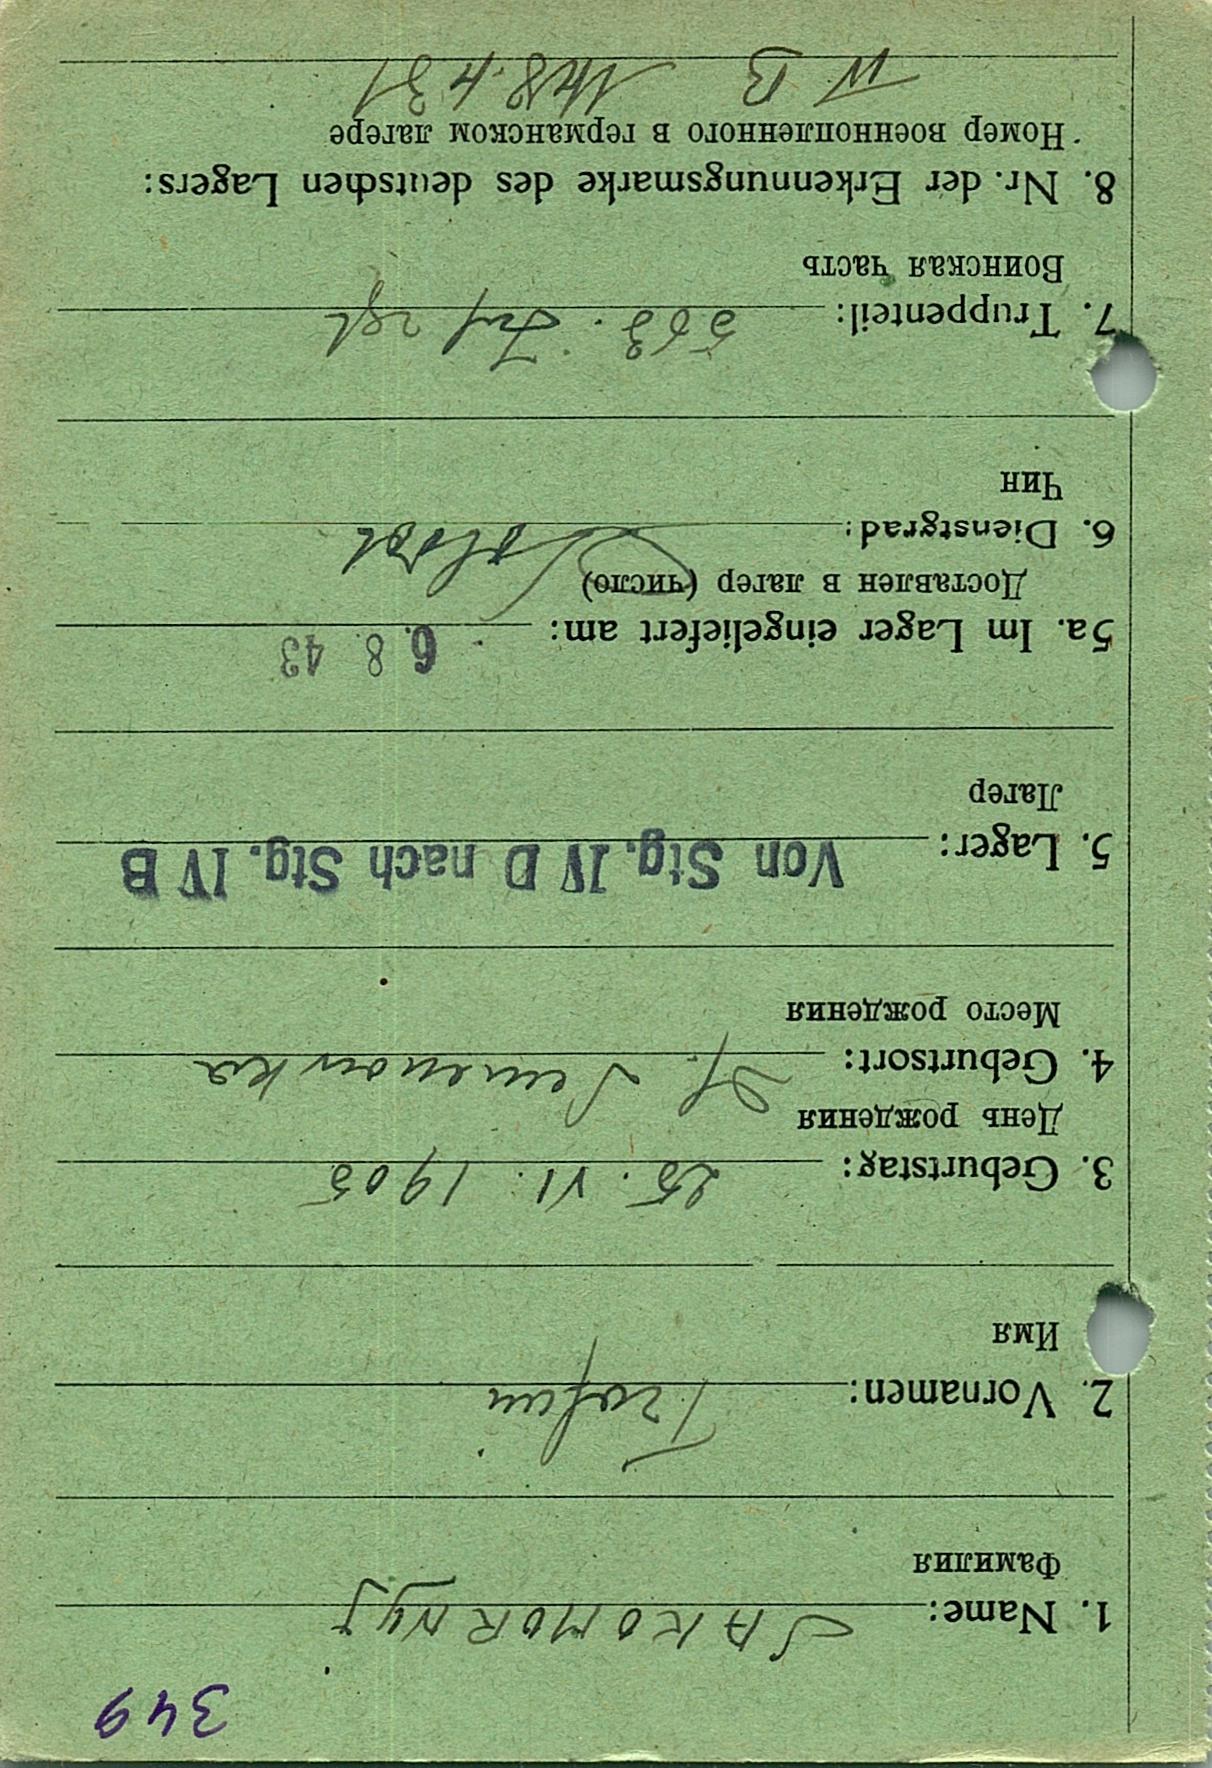 349
1. Name: SAKOMORNYJ
Фамилия
2. Vornamen: Trofim
Имя
3. Geburtstag: 25. VI. 1905
День рождения
4. Geburtsort: Df. Semenowka
Место рождения
5. Lager: Von Stg. IV D nach Stg. IV B
Лагер
5a. Im Lager eingeliefert am: 6. 8. 43
Доставлен в лагер (число)
6. Dienstgrad: Soldat
Чин
7. Truppenteil: Inf rgt
Воинская часть
8. Nr. der Erkennungsmarke des deutschen Lagers:
Номер военнопленного в германском лагере
IV B